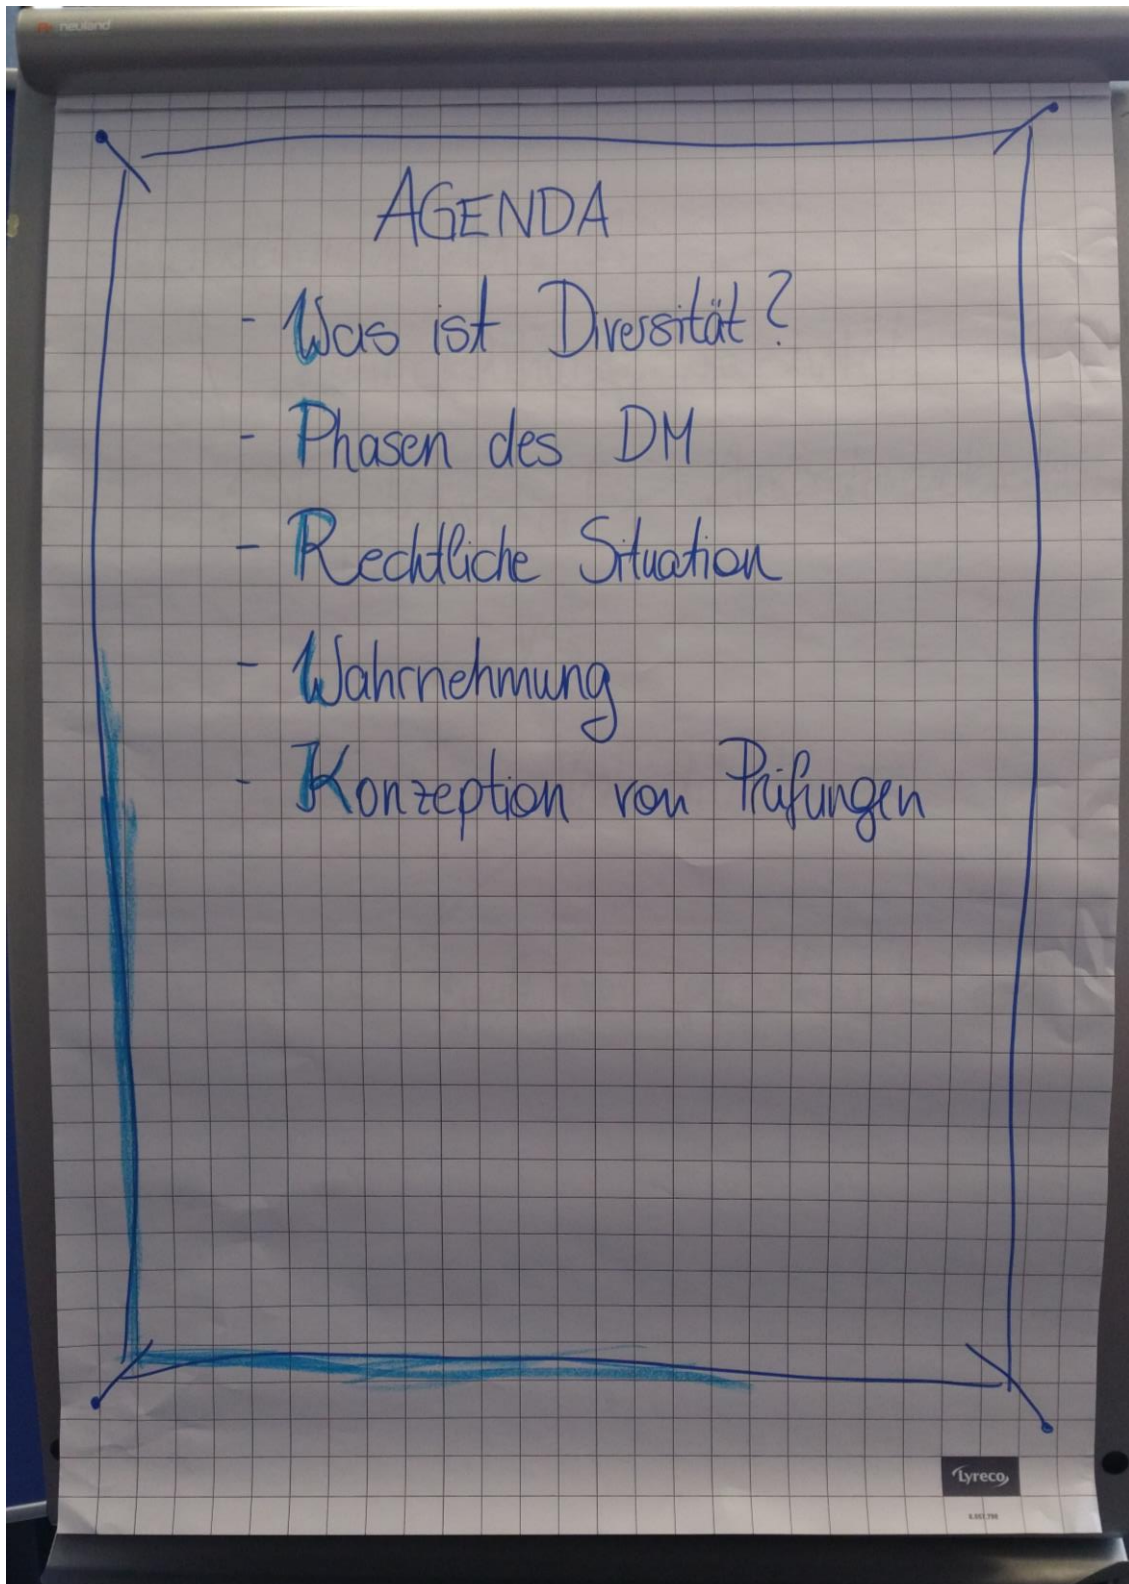 neuland
AGENDA
- Was ist Diversität?
- Phasen des DM
- Rechtliche Situation
- Wahrnehmung
- Konzeption von Prüfungen
Lyreco